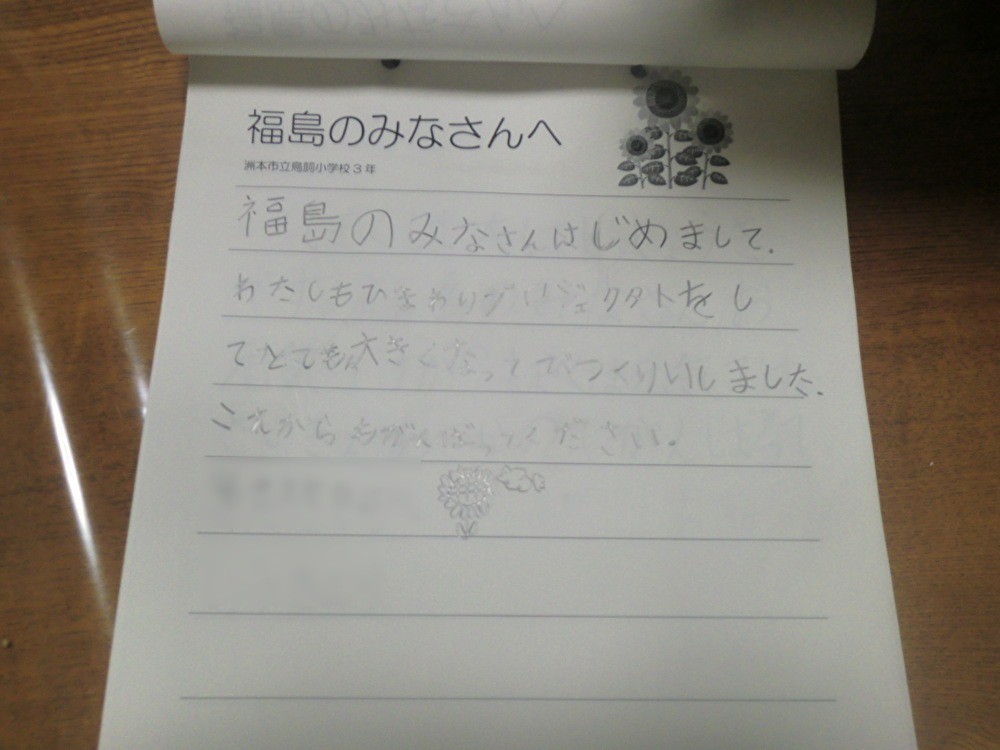 福島のみなさんへ
洲本市立鳥飼小学校3年
福島のみなさんはじめまして。
わたしもひまわりプロジェクタトをし
てとても大きくなってびっくりいしました。
これからもがんばってください。